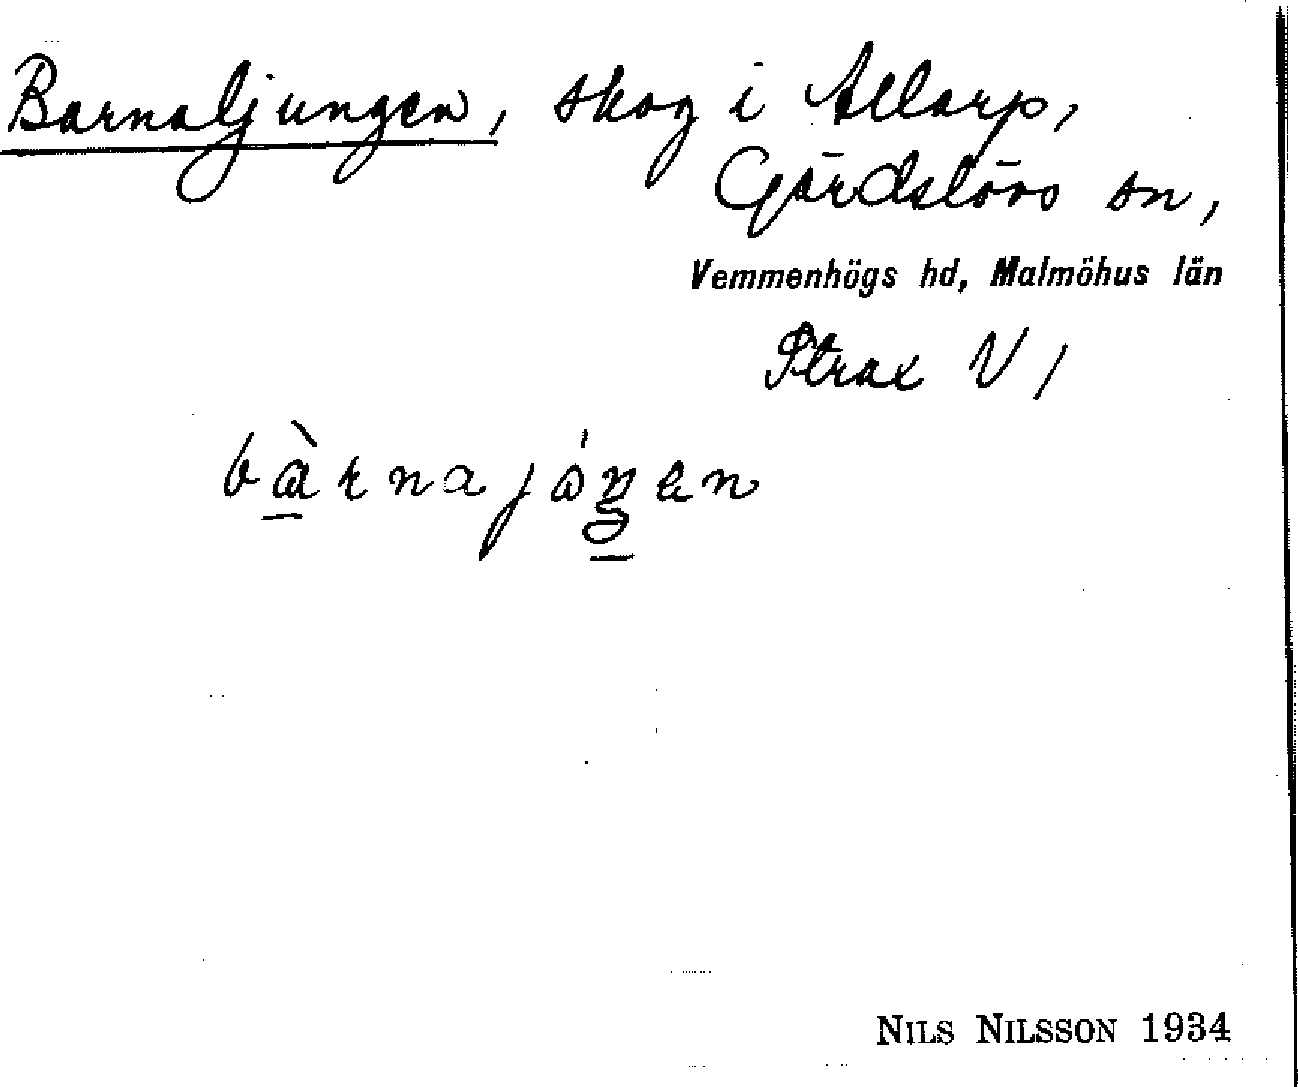 Barnaljungen, skog i Allarp,
Gärdslövs sn,
Vemmenhögs hd, Malmöhus län
Strax V /
NILS NILSSON 1934